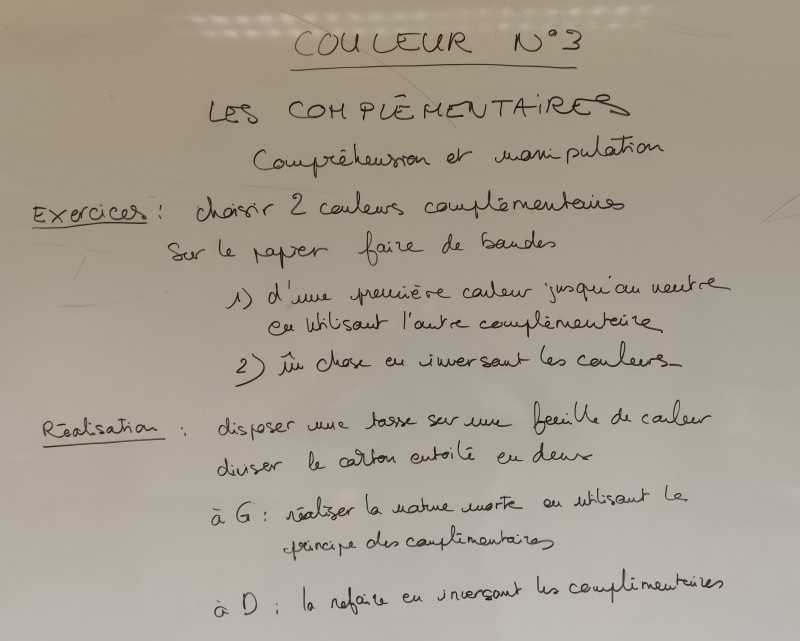 COULEUR N°3
LES COMPLÉMENTAIRES
Compréhension et manipulation
Exercices : choisir 2 couleurs complémentaires
Sur le papier faire de bandes
1) d'une première couleur jusqu'au neutre
en utilisant l'autre complémentaire
2) chose en inversant les couleurs
Réalisation : disposer une tasse sur une feuille de couleur
diviser le carton entoilé en deux
à G : réaliser la nature morte en utilisant le
principe des complémentaires
à D : la refaire en inversant les complémentaires